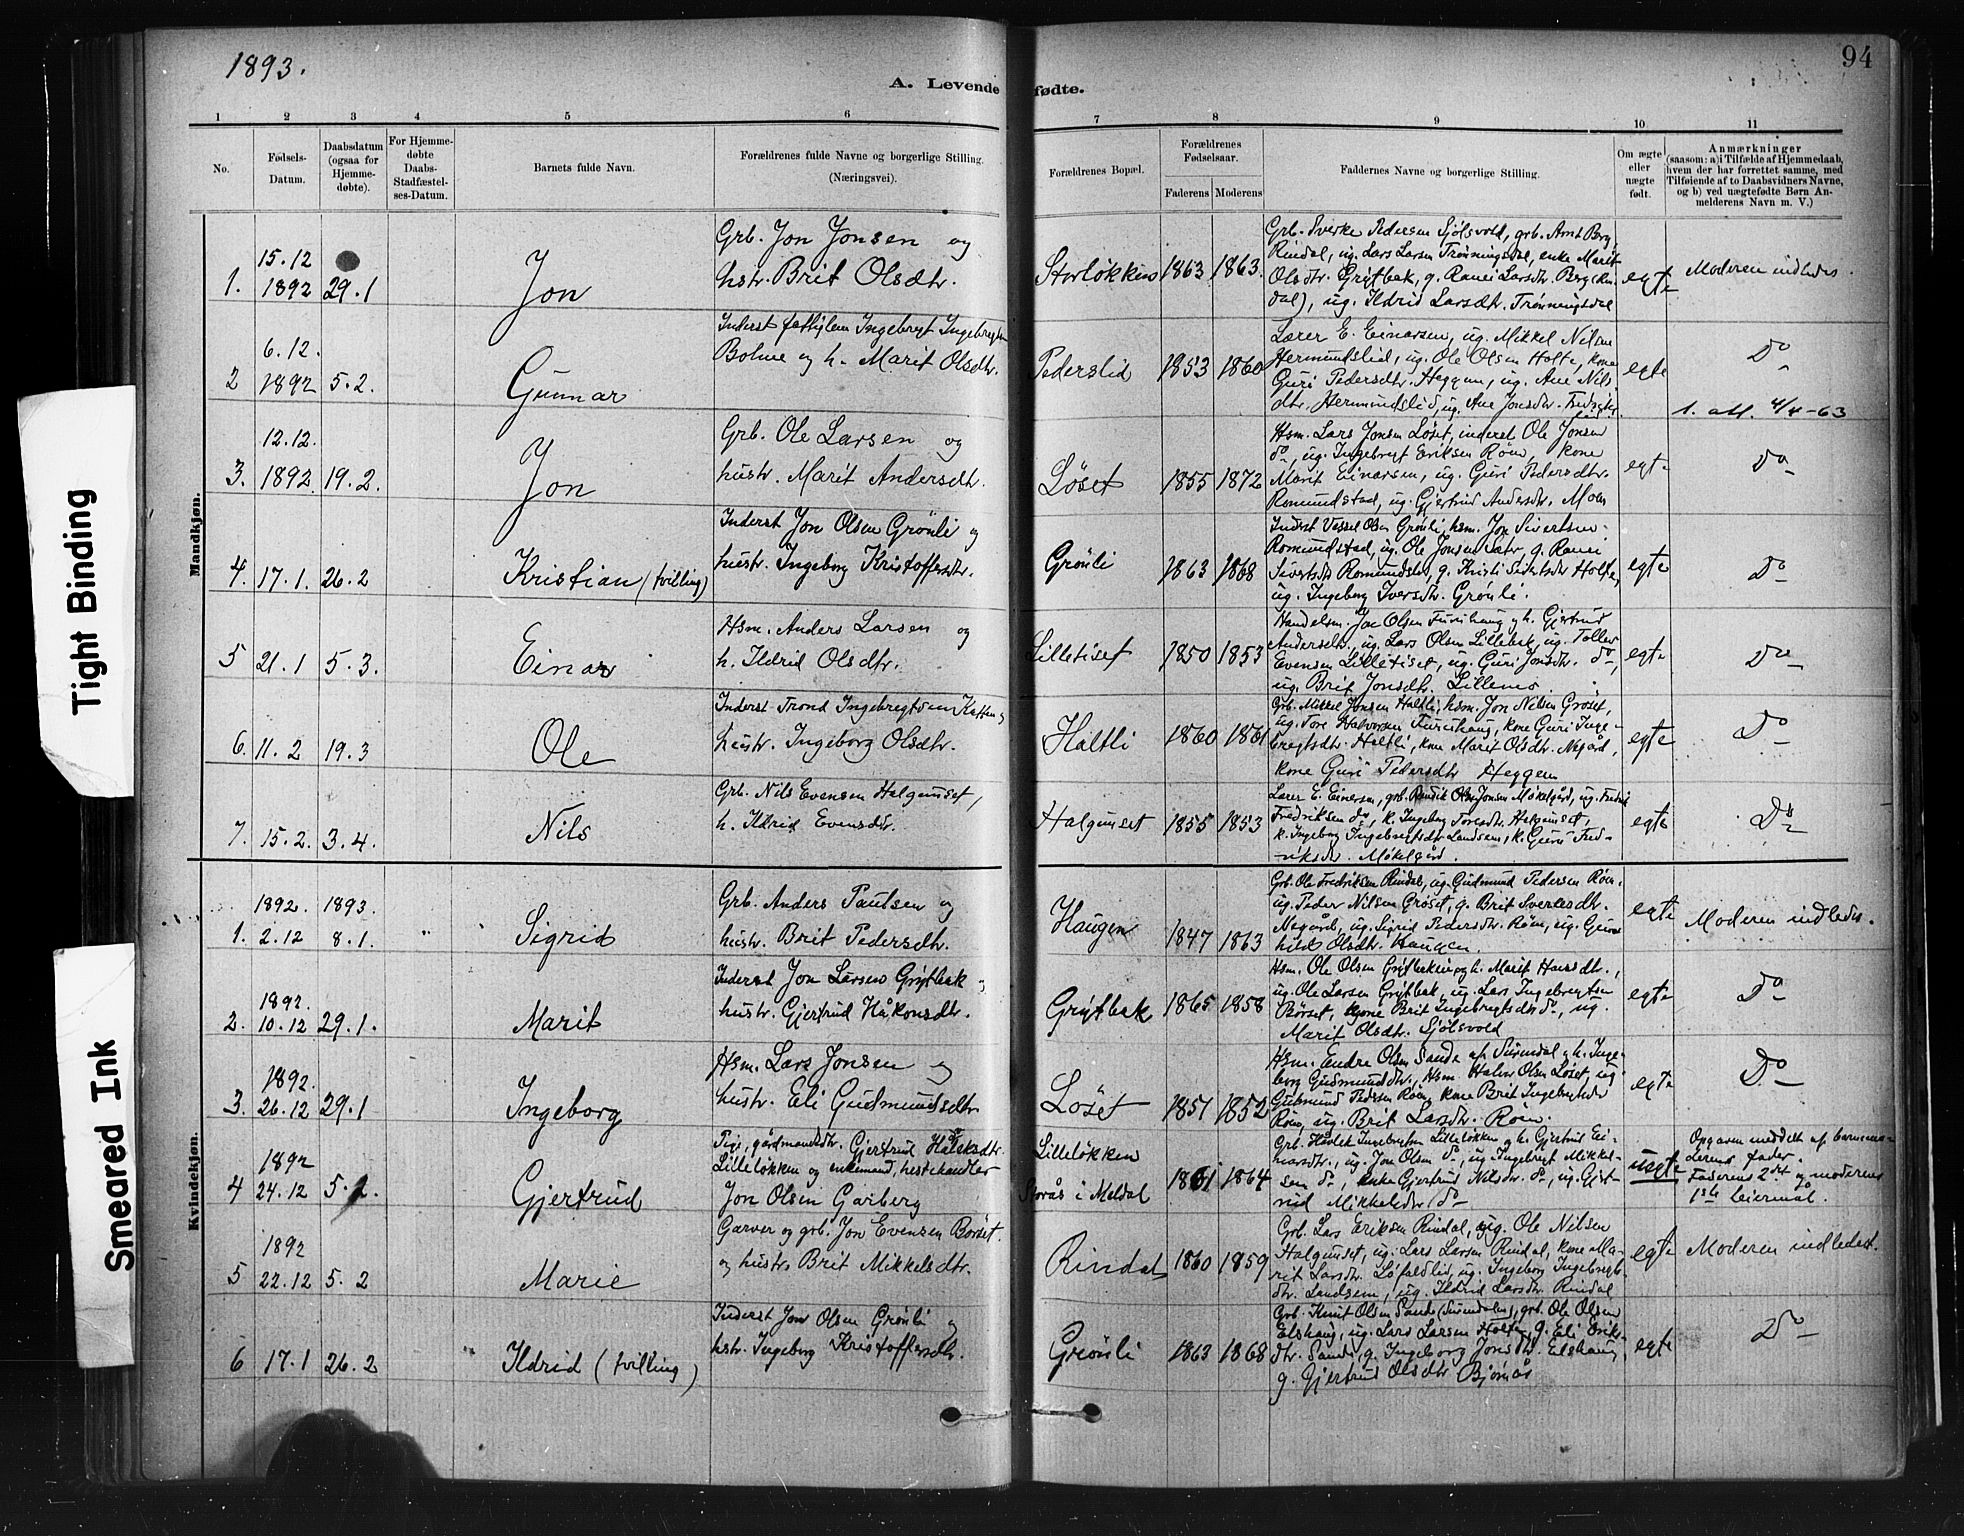 1893.
94
A. Levende fødte.
1 2 3 4 5 6 7 8 9 10 11
No.
Fødsels-
Datum.
Daabsdatum
(ogsaa for
Hjemme-
døbte).
For Hjemme-
døbte
Daabs-
Stadfæstel-
ses-Datum.
Barnets fulde Navn.
Forældrenes fulde Navne og borgerlige Stilling.
(Næringsvei).
Forældrenes Bopæl.
Forældrenes
Fødselsaar.
Faderens Moderens
Faddernes Navne og borgerlige Stilling.
Om ægte
eller
uægte
født.
Anmærkninger
(saasom: a) i Tilfælde af Hjemmedaab,
hvem der har forrettet samme, med
Tilføiende af to Daabsvidners Navne,
og b) ved uægtefødte Børn An-
melderens Navn m. V.)
Mandkjøn.
1. 15.12
1892 29.1
Jon
Grb. Jon Jonsen og
hstr. Brit Olsdtr.
Storløkken 1863 1863.
Grb. Sverke Pedersen Sjølsvold, grb. Arnt Berg
Rindal, ug. Lars Larsen Trønningsdal, enke Marit
Olsdtr. Grytbak, g. Ranei Larsdtr. Berg (Rin-
dal), ug. Ildrid Larsdtr. Trønningsdal
egte
Moderen indledes.
2 6.12.
1892 5.2.
Gunnar
Inderst Ingebrigt
Bolme og h. Marit Olsdtr.
Pederslid 1853 1860
Lærer E. Einarsen, ug. Mikkel Nilsen
Hermundslid, ug. Ole Olsen Holte, kone
Guri Pedersdtr. Heggem, ug. Ane Nils
dtr. Hermundslid, ug. Ane Jonsdtr.
egte
Do
1. att. 4/4-63
3. 12.12.
1892 19.2.
Jon
Grb. Ole Larsen og
hustr. Marit Andersdtr.
Løset 1855 1872
Hsm. Lars Jonsen Løset, inderst Ole Jonsen
do, ug. Ingebrigt Eriksen Røen, kone
Marit Einarsen, ug. Guri Pedersdtr.
Romundstad, ug. Gjertrud Andersdtr. Moen
egte
Do
4. 17.1. 26.2
Kristian (tvilling)
Inderst Jon Olsen Grønli og
hustr. Ingeborg Kristoffersdtr.
Grønli 1863 1868
Inderst Olsen Grønli, hsm. Jon Sivertsen
Romundstad, ug. Ole Jonsen Sæter, g. Ranei
Sivertsdtr Romundstad, g. Kristi Sivertsdtr Holte,
ug. Ingeborg Iversdtr. Grønli.
egte
Do
5 21.1 5.3.
Einar
Hsm. Anders Larsen og
h. Ildrid Olsdtr.
Lilletiset 1850 1853
Handelsm. Jon Olsen Furuhaug og h. Gjertrud
Andersdtr., ug. Lars Olsen Lillebak, ug. Tollev
Evensen Lilletiset, ug. Guri Jonsdtr. do,
ug. Brit Jonsdtr. Lillemo
egte
Do
6. 11.2 19.3
Ole
Inderst Trond Ingebrigtsen
hustr. Ingeborg Olsdtr.
Haltli 1860 1861
Grb. Mikkel Jonsen Haltli, hsm. Jon Nilsen Grøset,
ug. Tore Halvorsen Furuhaug, kone Guri Inge-
brigtsdtr. Haltli, kone Marit Olsdtr. Negård,
kone Guri Pedersdtr Heggem
egte
Do
7. 15.2. 3.4.
Nils
Grb. Nils Evensen Halgunset,
h. Ildrid Evensdtr.
Halgunset 1855 1853
Lærer E. Einersen, grb. Jonsen Møkelgård, ug. Fredrik
Fredriksen do, k. Ingeborg Toresdtr. Halgunset,
k. Ingeborg Ingebrigtsdtr Landsem, k. Guri Fred-
riksdtr. Møkelgård.
egte
Do
Kvindekjøn.
1892. 1893.
1. 2.12 8.1.
Sigrid
Grb. Anders Paulsen og
hustr. Brit Pedersdtr.
Haugen 1847 1863
Grb. Ole Fredriksen Rindal, ug. Gudmund Pedersen Røen,
ug. Peder Nilsen Grøset, g. Brit Sverkesdtr.
Negård, ug. Sigrid Pedersdtr. Røen, ug. Gun-
hild Olsdtr. Haugen.
egte
Moderen indledes.
1892.
2. 10.12 29.1.
Marit
Inderst Jon Larsen Grytbak og
hustr. Gjertrud Håkonsdtr.
Grytbak 1865 1858
Hsm. Ole Olsen Grytbak og h. Marit Hansdtr.,
ug. Ole Larsen Grytbak, ug. Lars Ingebrigtsen
Børset, kone Brit Ingebrigtsdtr do, ug.
Marit Olsdtr. Sjølsvold
egte
Do
1892.
3. 26.12 29.1
Ingeborg
Hsm. Lars Jonsen og
hustr. Eli Gudmundsdtr
Løset 1851 1852
Hsm. Endre Olsen Sande af Surendal og h. Inge-
borg Gudmundsdtr., Hsm. Halvor Olsen Løset, ug.
Gudmund Pedersen Røen, kone Brit Ingebrigtsdtr
Røen, ug. Brit Larsdtr. Røen.
egte
Do
1892
4 24.12 5.2.
Gjertrud
Pige, gårdmandsdtr. Gjertrud
Lilleløkken og enkemand, hestehandler
Jon Olsen Garberg
Lilleløkken
Storås i Meldal 1861 1864
Grb. Ingebrigtsen Lilleløkken og h. Gjertrud Ei-
narsdtr., ug. Jon Olsen do, ug. Ingebrigt Mikkel-
sen do, enke Gjertrud Nilsdtr. do, ug. Gjert-
rud Mikkelsdtr do
uegte
Opgaven meddelt af barnemo-
derens fader.
Faderens 2det og moderens
1ste leiermål.
1892
5 22.12 5.2
Marie
Garver og grb. Jon Evensen Børset
og hustr. Brit Mikkelsdtr.
Rindal 1860 1859
Grb. Lars Eriksen Rindal, ug. Ole Nilsen
Halgunset, ug. Lars Larsen Rindal, kone Ma-
rit Larsdtr. Løfaldlid, ug. Ingeborg Ingebrigts-
dtr. Landsem, ug. Ildrid Larsdtr. Rindal
egte
Moderen indledet.
6 17.1 26.2
Ildrid (tvilling)
Inderst Jon Olsen Grønli og
hstr. Ingeborg Kristoffersdtr.
Grønli 1863 1868
Grb. Knut Olsen Sande (Surendalen), grb. Ole Olsen
Elshaug, ug. Lars Larsen Holte, g. Eli Eriks-
dtr. Sande, g. Ingeborg Jonsdtr. Elshaug,
g. Gjertrud Olsdtr Bjørnås
egte
Do
Tight Binding
Smeared Ink